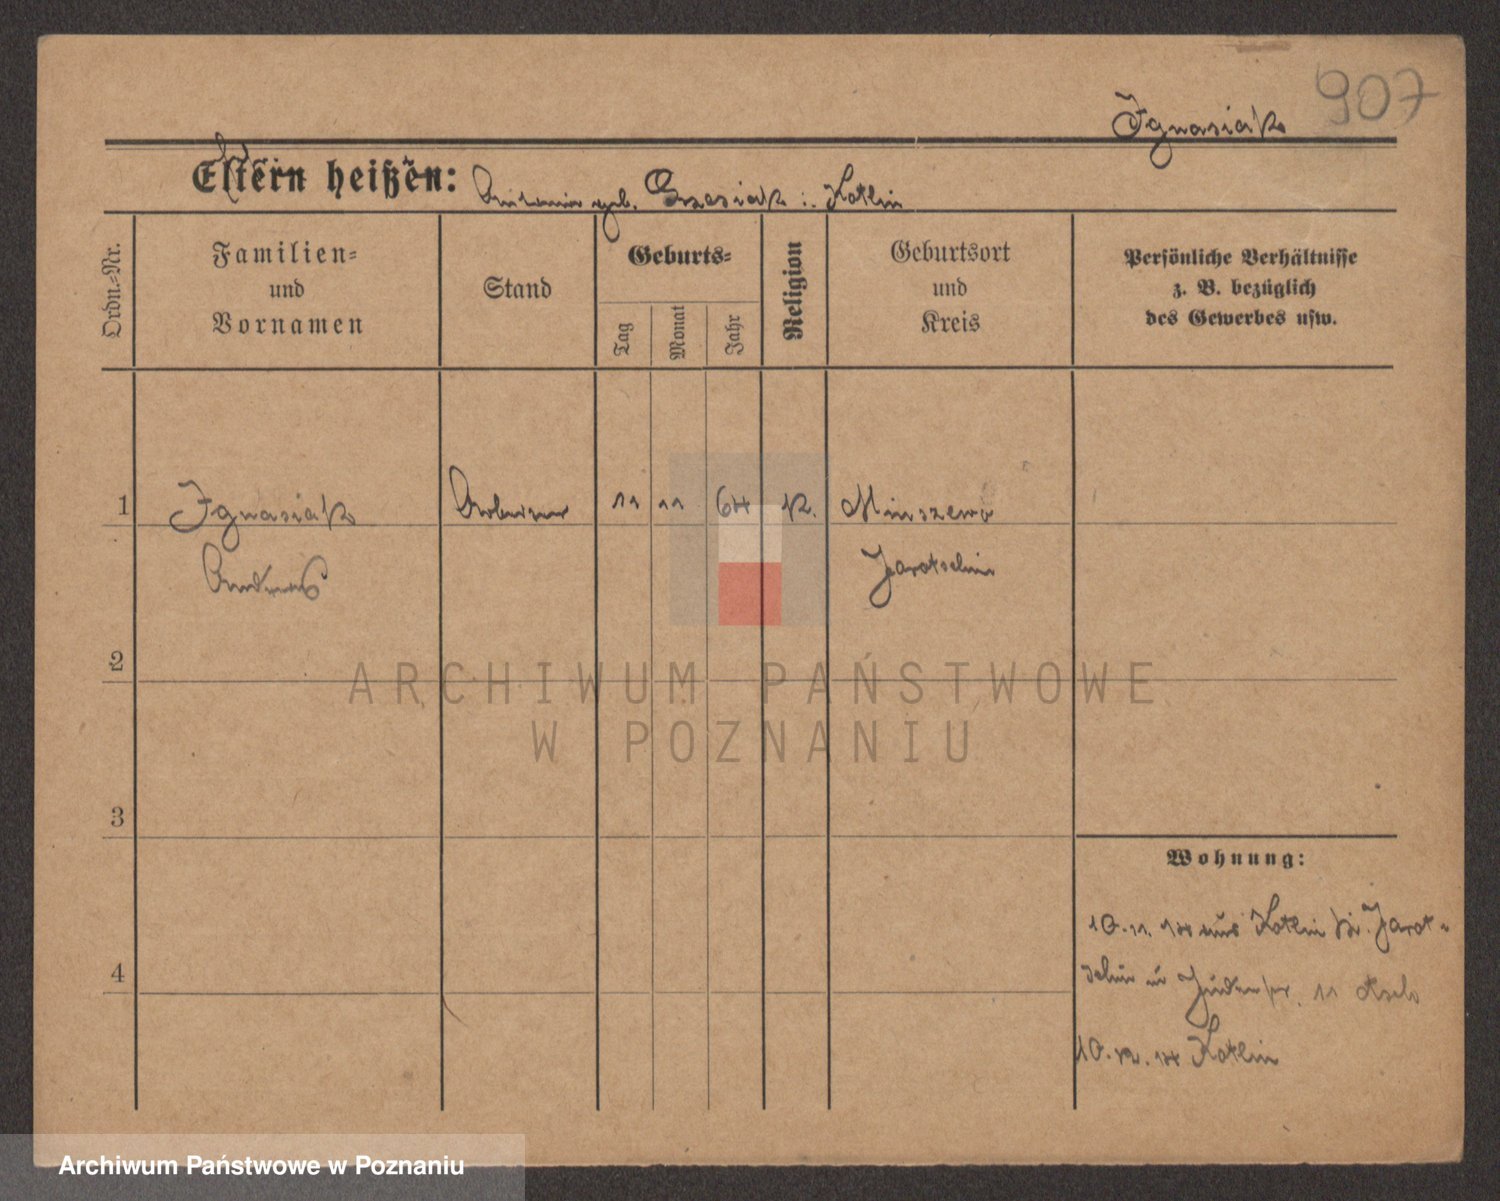 907
Ignasiak
Eltern heißen:
geb. Grzesiak i. Kotlin
Ordn.-Nr.
Familien-
und
Vornamen
Stand
Geburts-
Tag
Monat
Jahr
Religion
Geburtsort
und
Kreis
Persönliche Verhältnisse
z. B. bezüglich
des Gewerbes usw.
1
Ignasiak
Arbeiter
11
11
64
k.
Minszewo
Andreas
Jarotschin
2
ARCHIWUM PAŃSTWOWE
W POZNANIU
3
Wohnung:
10.11.14 aus Kotlin Kr. Jarot-
schin n Judenstr. 11
4
10.12.14 Kotlin
Archiwum Państwowe w Poznaniu